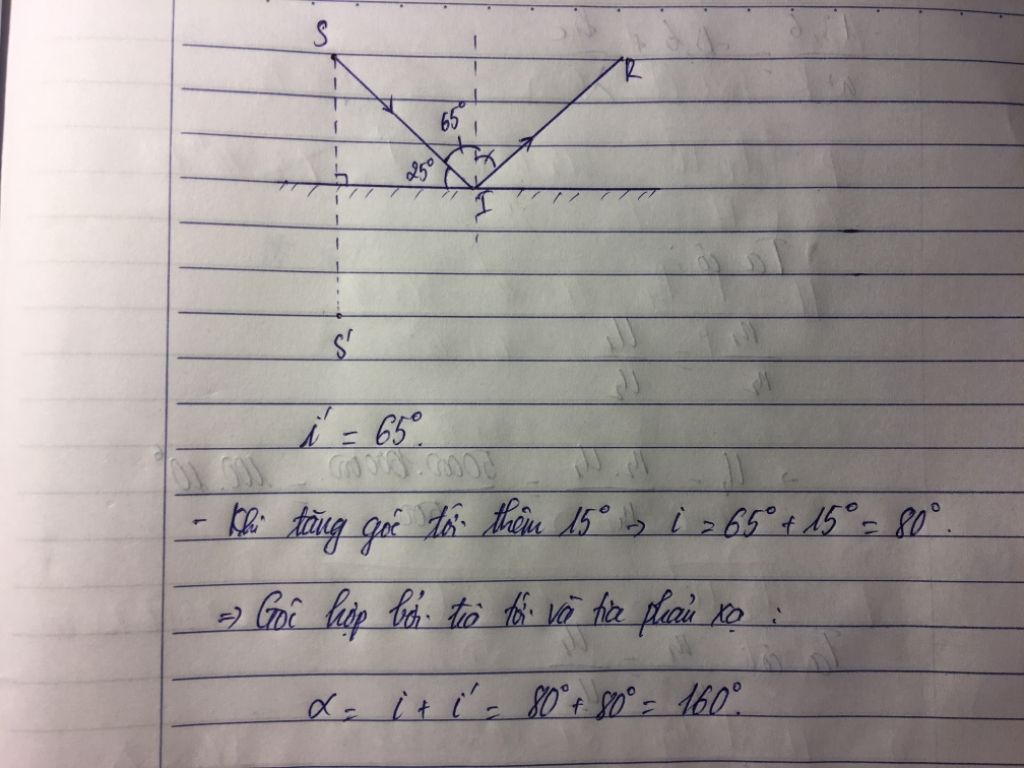 S
R
65°
25°
I
S'
i' = 65°.
- Khi tăng góc tới thêm 15° → i = 65° + 15° = 80°.
⇒ Góc hợp bởi tia tới và tia phản xạ :
α = i + i' = 80° + 80° = 160°.